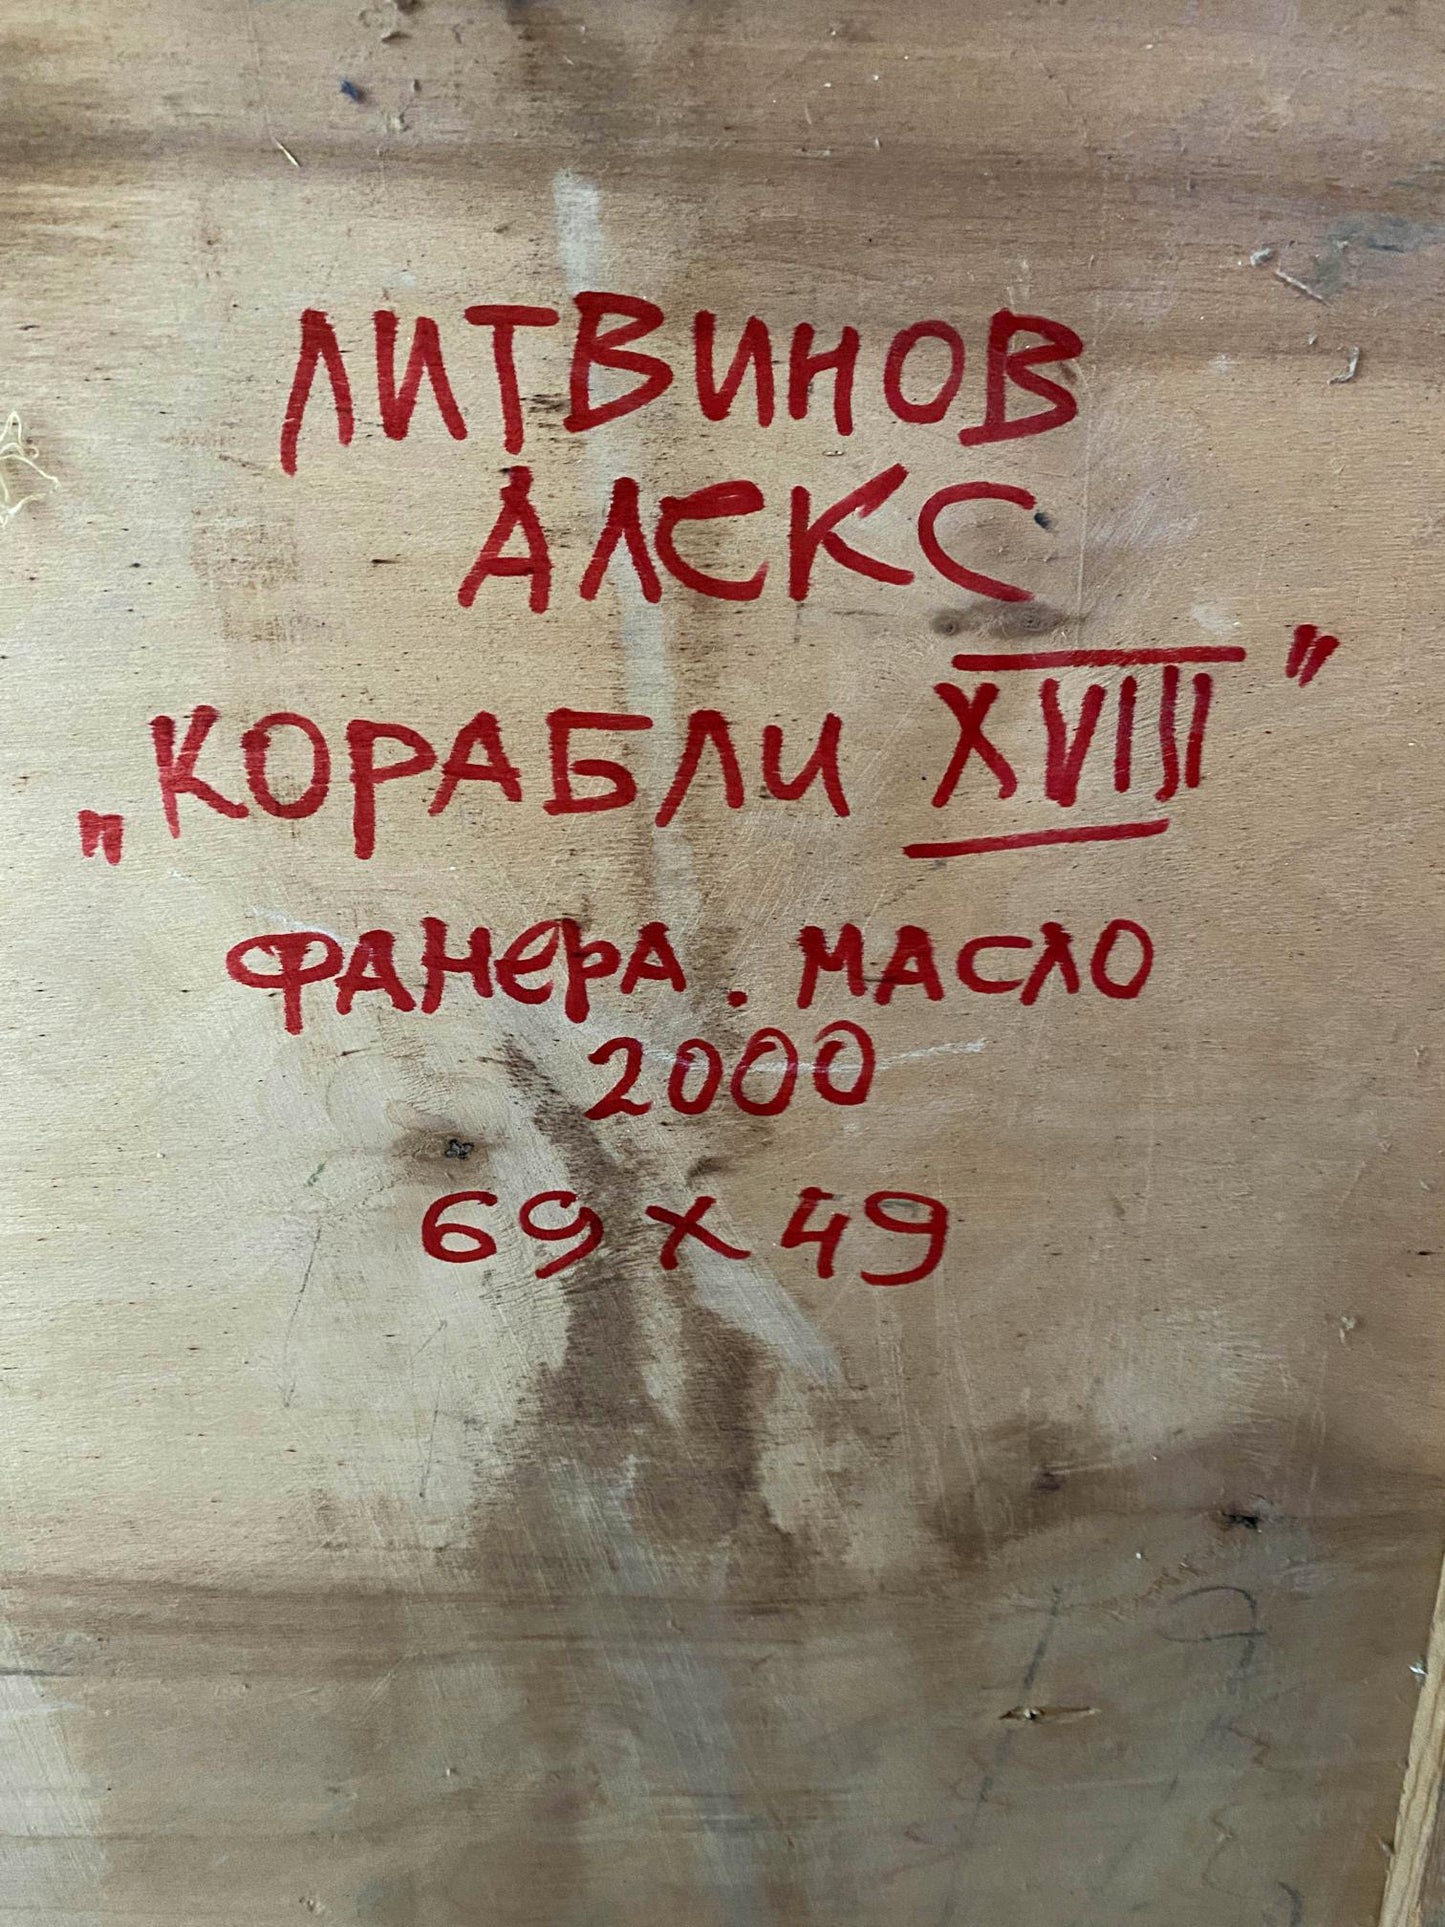 ЛИТВИНОВ
АЛЕКС
„КОРАБЛИ XVIII"
ФАНЕРА. МАСЛО
2000
69 x 49